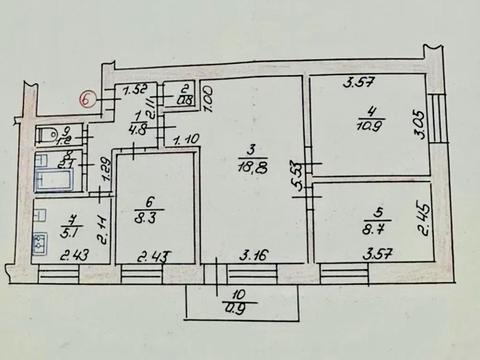 1.52
2
0.8
1.00
3.57
6
2.11
1
4.8
4
10.9
3.05
9
1.2
1.10
3
18,8
8
2.1
1.29
5.53
6
8.3
5
8.7
2.45
7
5.1
2.14
2.43
2.43
3.16
3.57
10
0.9